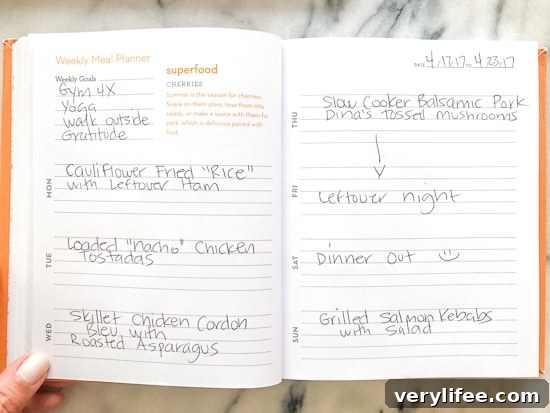 Weekly Meal Planner
Weekly Goals
Gym 4X
Yoga
walk outside
Gratitude
superfood
CHERRIES
Summer is the season for cherries.
Snack on them plain, toss them into
salads, or make a sauce with them for
pork, which is delicious paired with
fruit.
MON
Cauliflower Fried "Rice"
with Leftover Ham
TUE
Loaded "nacho" Chicken
Tostadas
WED
Skillet Chicken Cordon
Bleu with
Roasted Asparagus
DATE 4.17.17 TO 4.23.17
THU
Slow Cooker Balsamic Pork
Dina's Tossed mushrooms
FRI
Leftover night
SAT
Dinner Out
SUN
Grilled Salmon Kebabs
with Salad
verylifee.com